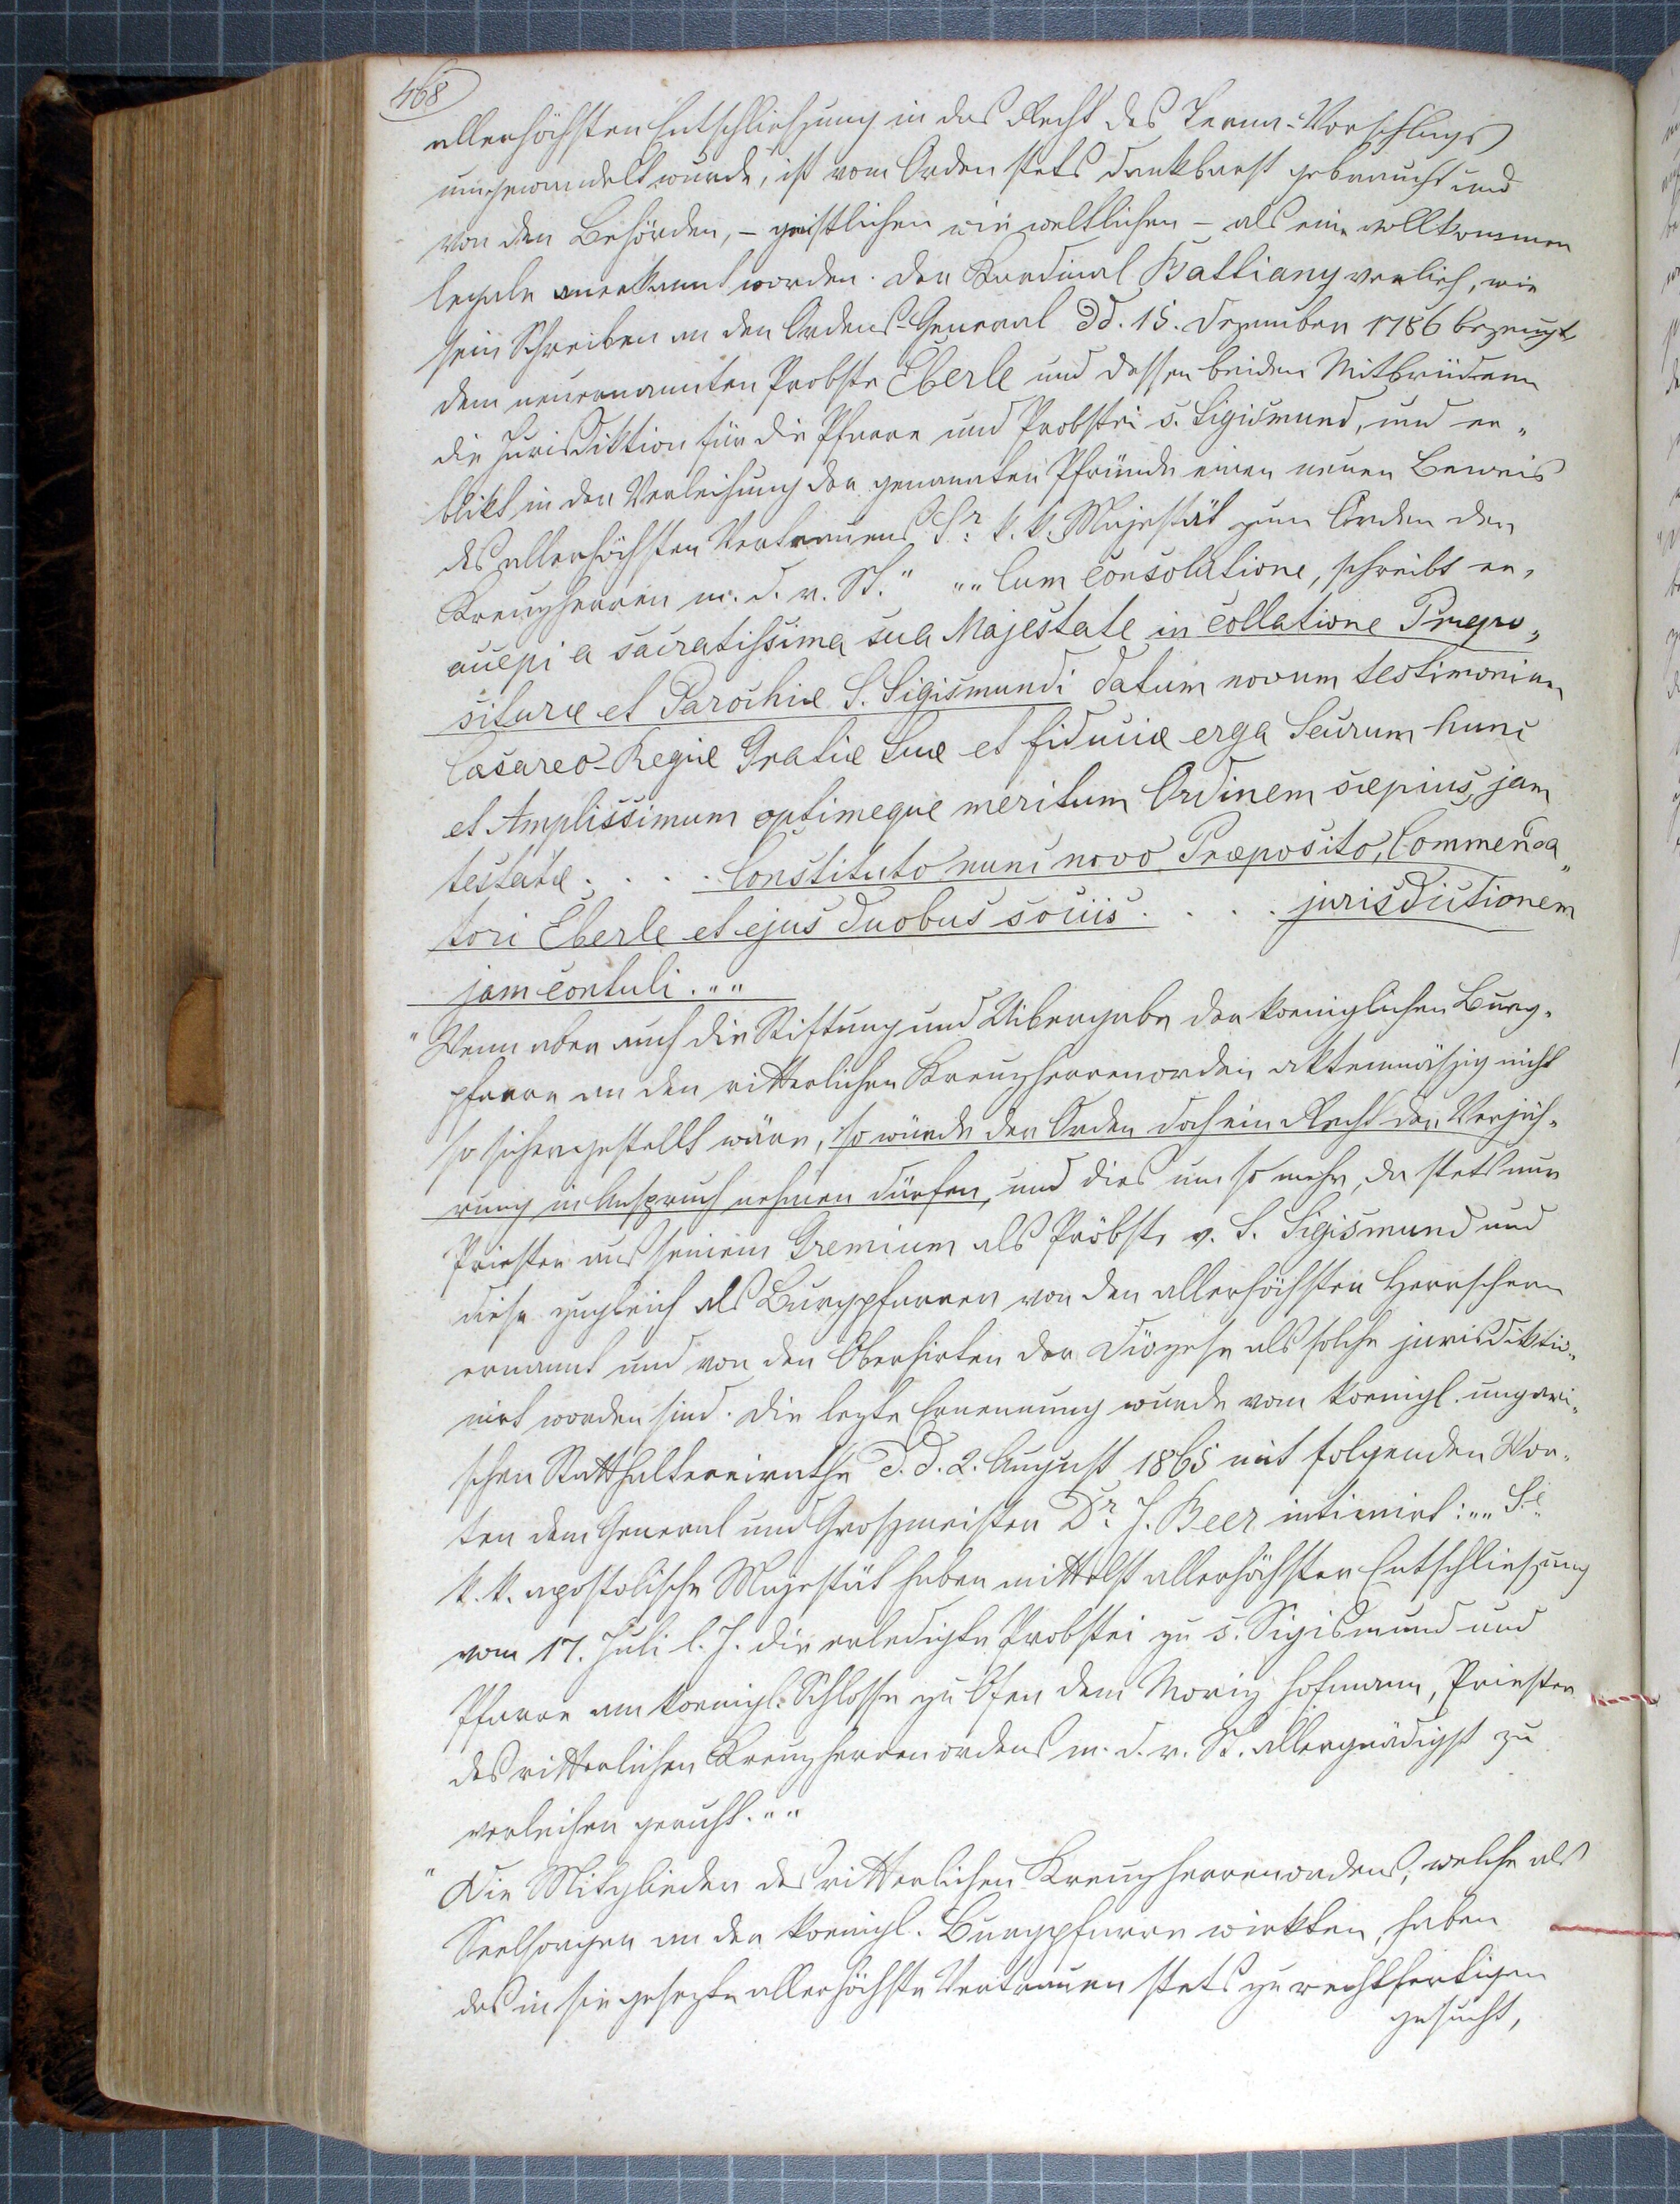 468
allerhöchsten Entschließung in das Recht des Terna-Vorschlags
umgewandelt wurde, ist vom Orden stets dankbarst gebraucht und
von den Behörden, – geistlichen wie weltlichen – als eine vollkommen
legale anerkannt worden. Der Kardinal Battiany verlieh, wie
sein Schreiben an den Ordens-General dd. 15. Dezember 1786 bezeugt,
dem neuernannten Probste Eberle und dessen beiden Mitbrüdern
die Jurisdiktion für die Pfarre und Probstei s. Sigismund, und er„
blikt in der Verleihung der genannten Pfründe einen neuen Beweis
des allerhöchsten Vertrauens Sr. k. k. Majestät zum Orden der
Kreuzherren m. d. r. St." „„Cum consolatione, schreibt er,
accepi a sacratissima sua Majestate in collatione Præpo„
situræ et Parochiæ S. Sigismundi datum novum testimonium
Cæsareo-Regiæ Gratiæ Suæ et fiduciæ erga Sacrum hunc
et Amplissimum optimeque meritum Ordinem sæpius jam
testatæ. . . . . Constituto nunc novo Præposito, Commenda„
tori Eberle et ejus duobus sociis. . . . . jurisdictionem
jam contuli.""
"Wenn aber auch die Stiftung und Uibergabe der koeniglichen Burg-
pfarre an den ritterlichen Kreuzherrenorden aktenmäßig nicht
so sichergestellt wäre, so würde der Orden doch ein Recht der Verjäh-
rung in Anspruch nehmen dürfen, und dies um so mehr, da stets nur
Priester aus seinem Gremium als Pröbste v. S. Sigismund und
diese zugleich als Burgpfarrer von den allerhöchsten Herrschern
ernannt und von den Oberhirten der Diözese als solche jurisdiktio„
nirt worden sind. Die lezte Ernennung wurde vom koenigl. ungari„
schen Statthaltereirathe d. d. 2. August 1865 mit folgenden Wor-
ten dem General und Großmeister Dr. J. Beer intimirt: „„Se.
k. k. apostolische Majestät haben mittelst allerhöchster Entschließung
vom 17. Juli l. J. die erledigte Probstei zu s. Sigismund und
Pfarre am koenigl. Schlosse zu Ofen dem Moriz Hofmann, Priester
des ritterlichen Kreuzherrenordens m. d. r. St. allergnädigst zu
verleihen geruht.""
"Die Mitglieder des ritterlichen Kreuzherrenordens, welche als
Seelsorger an der koenigl. Burgpfarre wirkten, haben
das in sie gesezte allerhöchste Vertrauen stets zu rechtfertigen
gesucht,